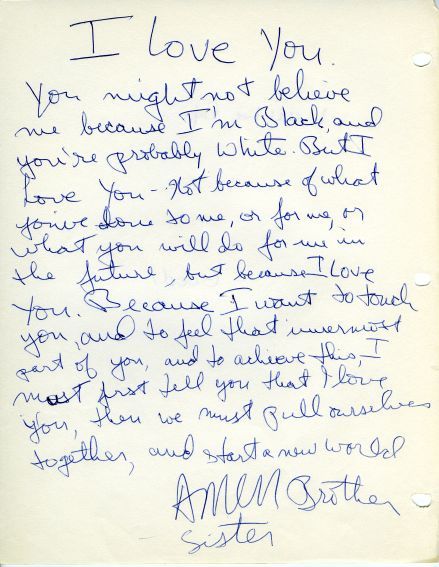 I Love You.
You might not believe
me because I'm Black, and
you're probably White. But I
Love You - Not because of what
you've done to me, or for me, or
what you will do for me in
the future, but because I Love
You. Because I want to touch
you, and to feel that innermost
part of you, and to achieve this, I
must first tell you that I love
You, then we must pull ourselves
together, and start a new world
AMEN Brother
Sister